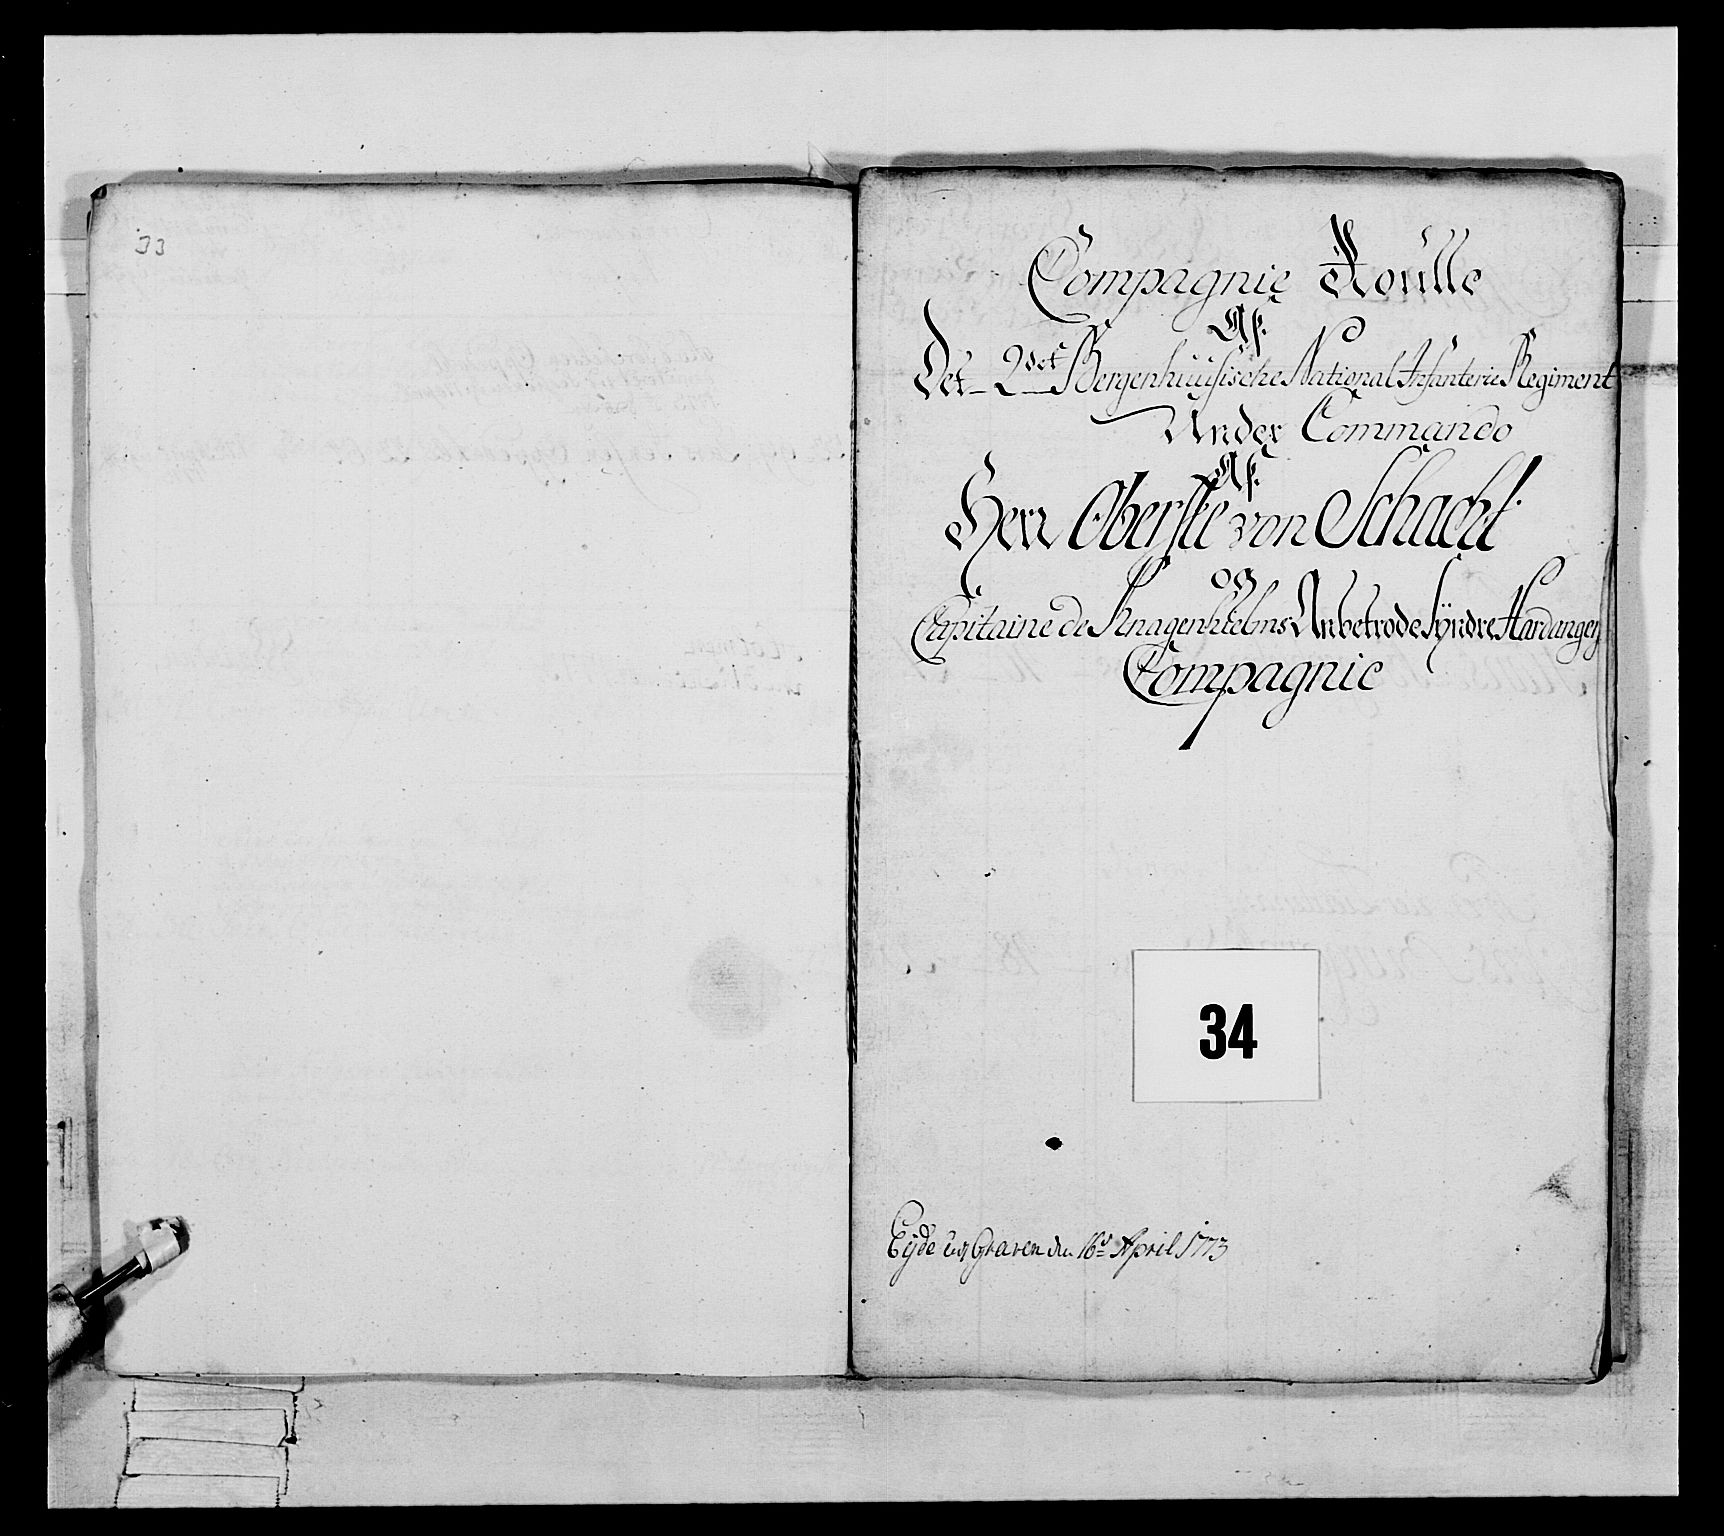 33
Compagnie Roulle
Af
Det 2det Bergenhuusische National Infanterie Regiment
Under Commando
Af
Herr Oberste von Schacht
og
Capitaine de Knagenhielms Anbetrode Syndre Hardanger
Compagnie
34
Eyde udj Graven den 16de April 1773